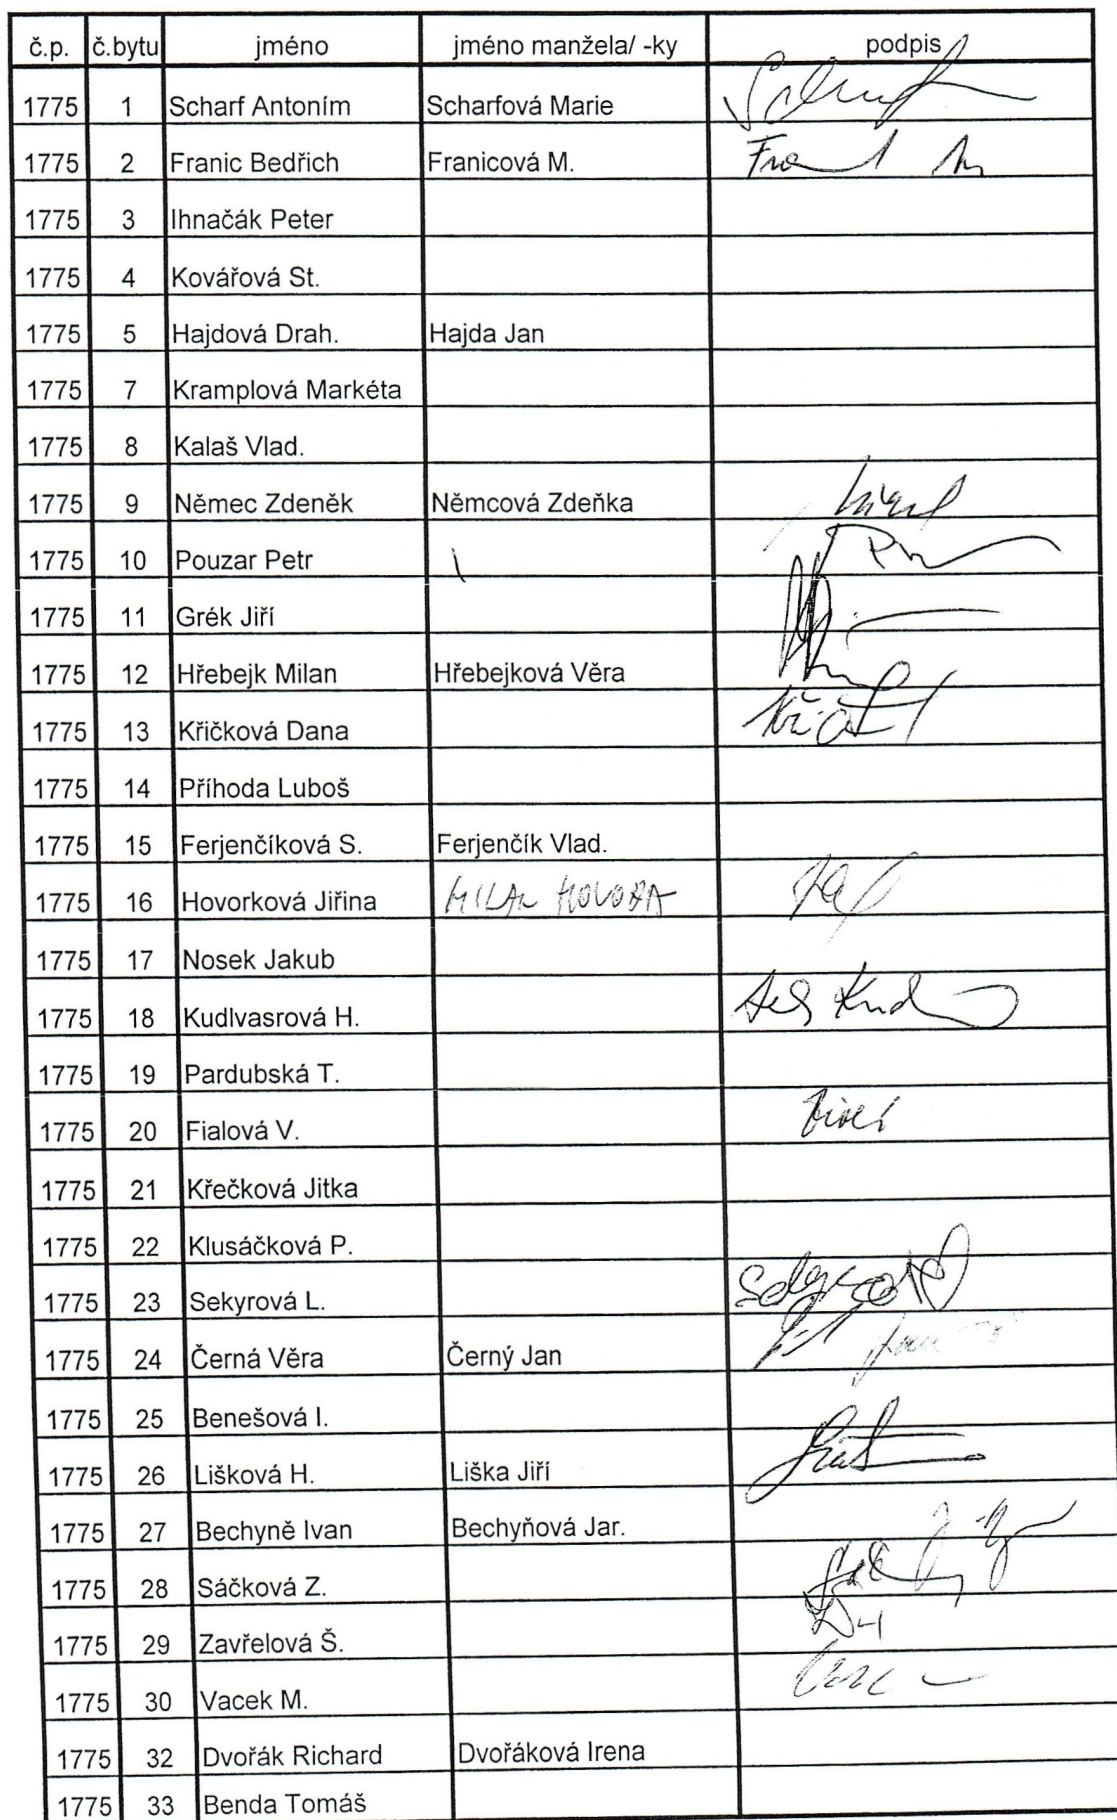 č.p. č.bytu jméno jméno manžela/ -ky podpis
1775 1 Scharf Antoním Scharfová Marie
1775 2 Franic Bedřich Franicová M.
1775 3 Ihnačák Peter
1775 4 Kovářová St.
1775 5 Hajdová Drah. Hajda Jan
1775 7 Kramplová Markéta
1775 8 Kalaš Vlad.
1775 9 Němec Zdeněk Němcová Zdeňka
1775 10 Pouzar Petr
1775 11 Grék Jiří
1775 12 Hřebejk Milan Hřebejková Věra
1775 13 Křičková Dana
1775 14 Příhoda Luboš
1775 15 Ferjenčíková S. Ferjenčík Vlad.
1775 16 Hovorková Jiřina MILAN
1775 17 Nosek Jakub
1775 18 Kudlvasrová H.
1775 19 Pardubská T.
1775 20 Fialová V.
1775 21 Křečková Jitka
1775 22 Klusáčková P.
1775 23 Sekyrová L.
1775 24 Černá Věra Černý Jan
1775 25 Benešová I.
1775 26 Lišková H. Liška Jiří
1775 27 Bechyně Ivan Bechyňová Jar.
1775 28 Sáčková Z.
1775 29 Zavřelová Š.
1775 30 Vacek M.
1775 32 Dvořák Richard Dvořáková Irena
1775 33 Benda Tomáš